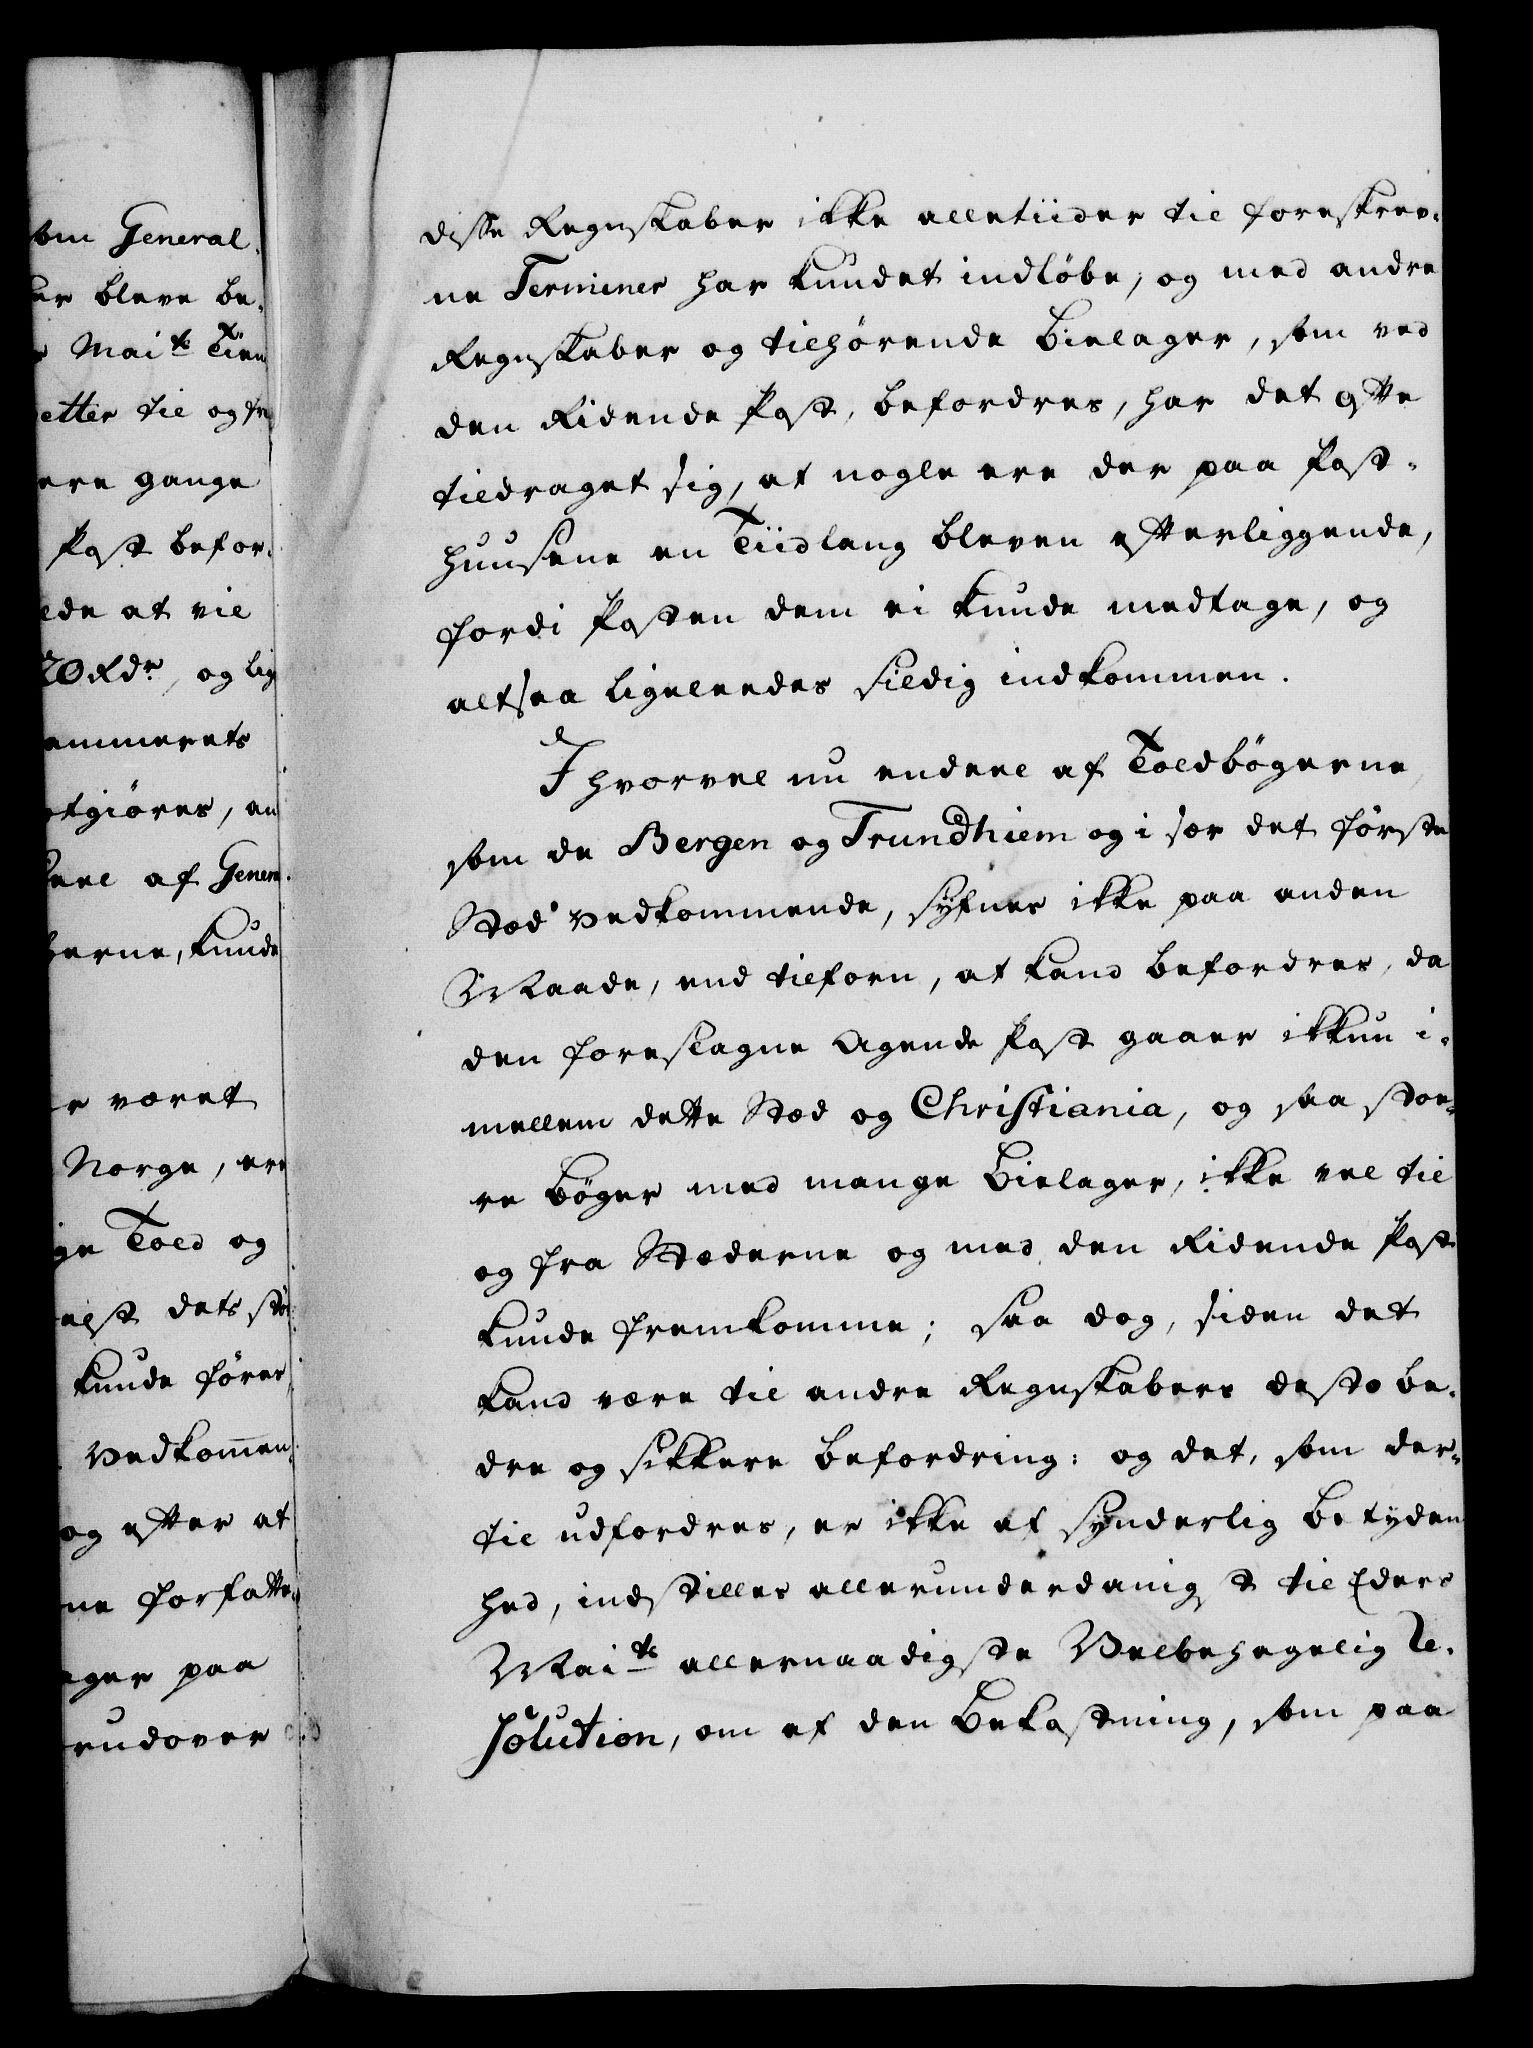 om General-
er bleve be-
Mai^ts Tien
etter til og fr
ere gange
Post befor-
ede at vil
20 Rd^r, og lig
ammerets
otgiøres, en
deel af Genera-
herne, kunde
r været
Norge, ere
ge Told og
elst dets stø
kunde føres,
Vedkom̄en-
og efter at
ne forfatte
ager paa
endover
disse Regnskaber ikke alletiider til foreskrev-
ne Terminer har kundet indløbe, og med andre
Regnskaber og tilhørende Bielager, som ved
den Ridende Post, befordres, har det ofte
tildraget sig, at nogle ere der paa Post-
huusene en Tiidlang bleven efterliggende,
fordi Posten dem ei kunde medtage, og
altsaa ligeleedes sildig indkommen.
Ihvorvel nu endeel af Toldbøgerne,
som de Bergen og Trundhiem og i sær det første
Stæd vedkommende, syfnes ikke paa anden
Maade, end tilforn, at kand befordres, da
den foreslagne Agende Post gaaer ikkun i-
mellem dette Stæd og Christiania, og saa stor-
re Bøger med mange Bielager, ikke vel til
og fra Stæderne og med den Ridende Post
kunde fremkomme; saa dog, siden det
kand være til andre Regnskabers desto be-
dre og sikkere befordring: og det, som der-
til udfordres, er ikke af synderlig betyden
hed, indstilles allerunderdanigst til Eders
Mai^ts allernaadigste Velbehagelig Re-
solution, om af den Bekostning, som paa